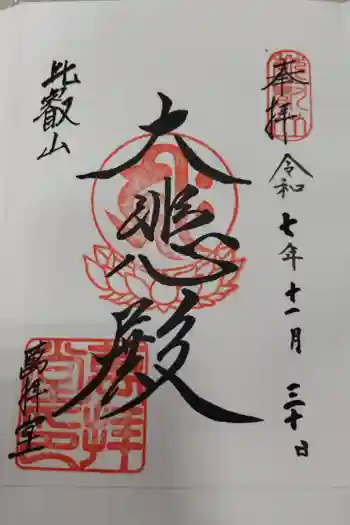 奉拝
令和七年十一月三十日
大悲殿
比叡山
萬拝堂